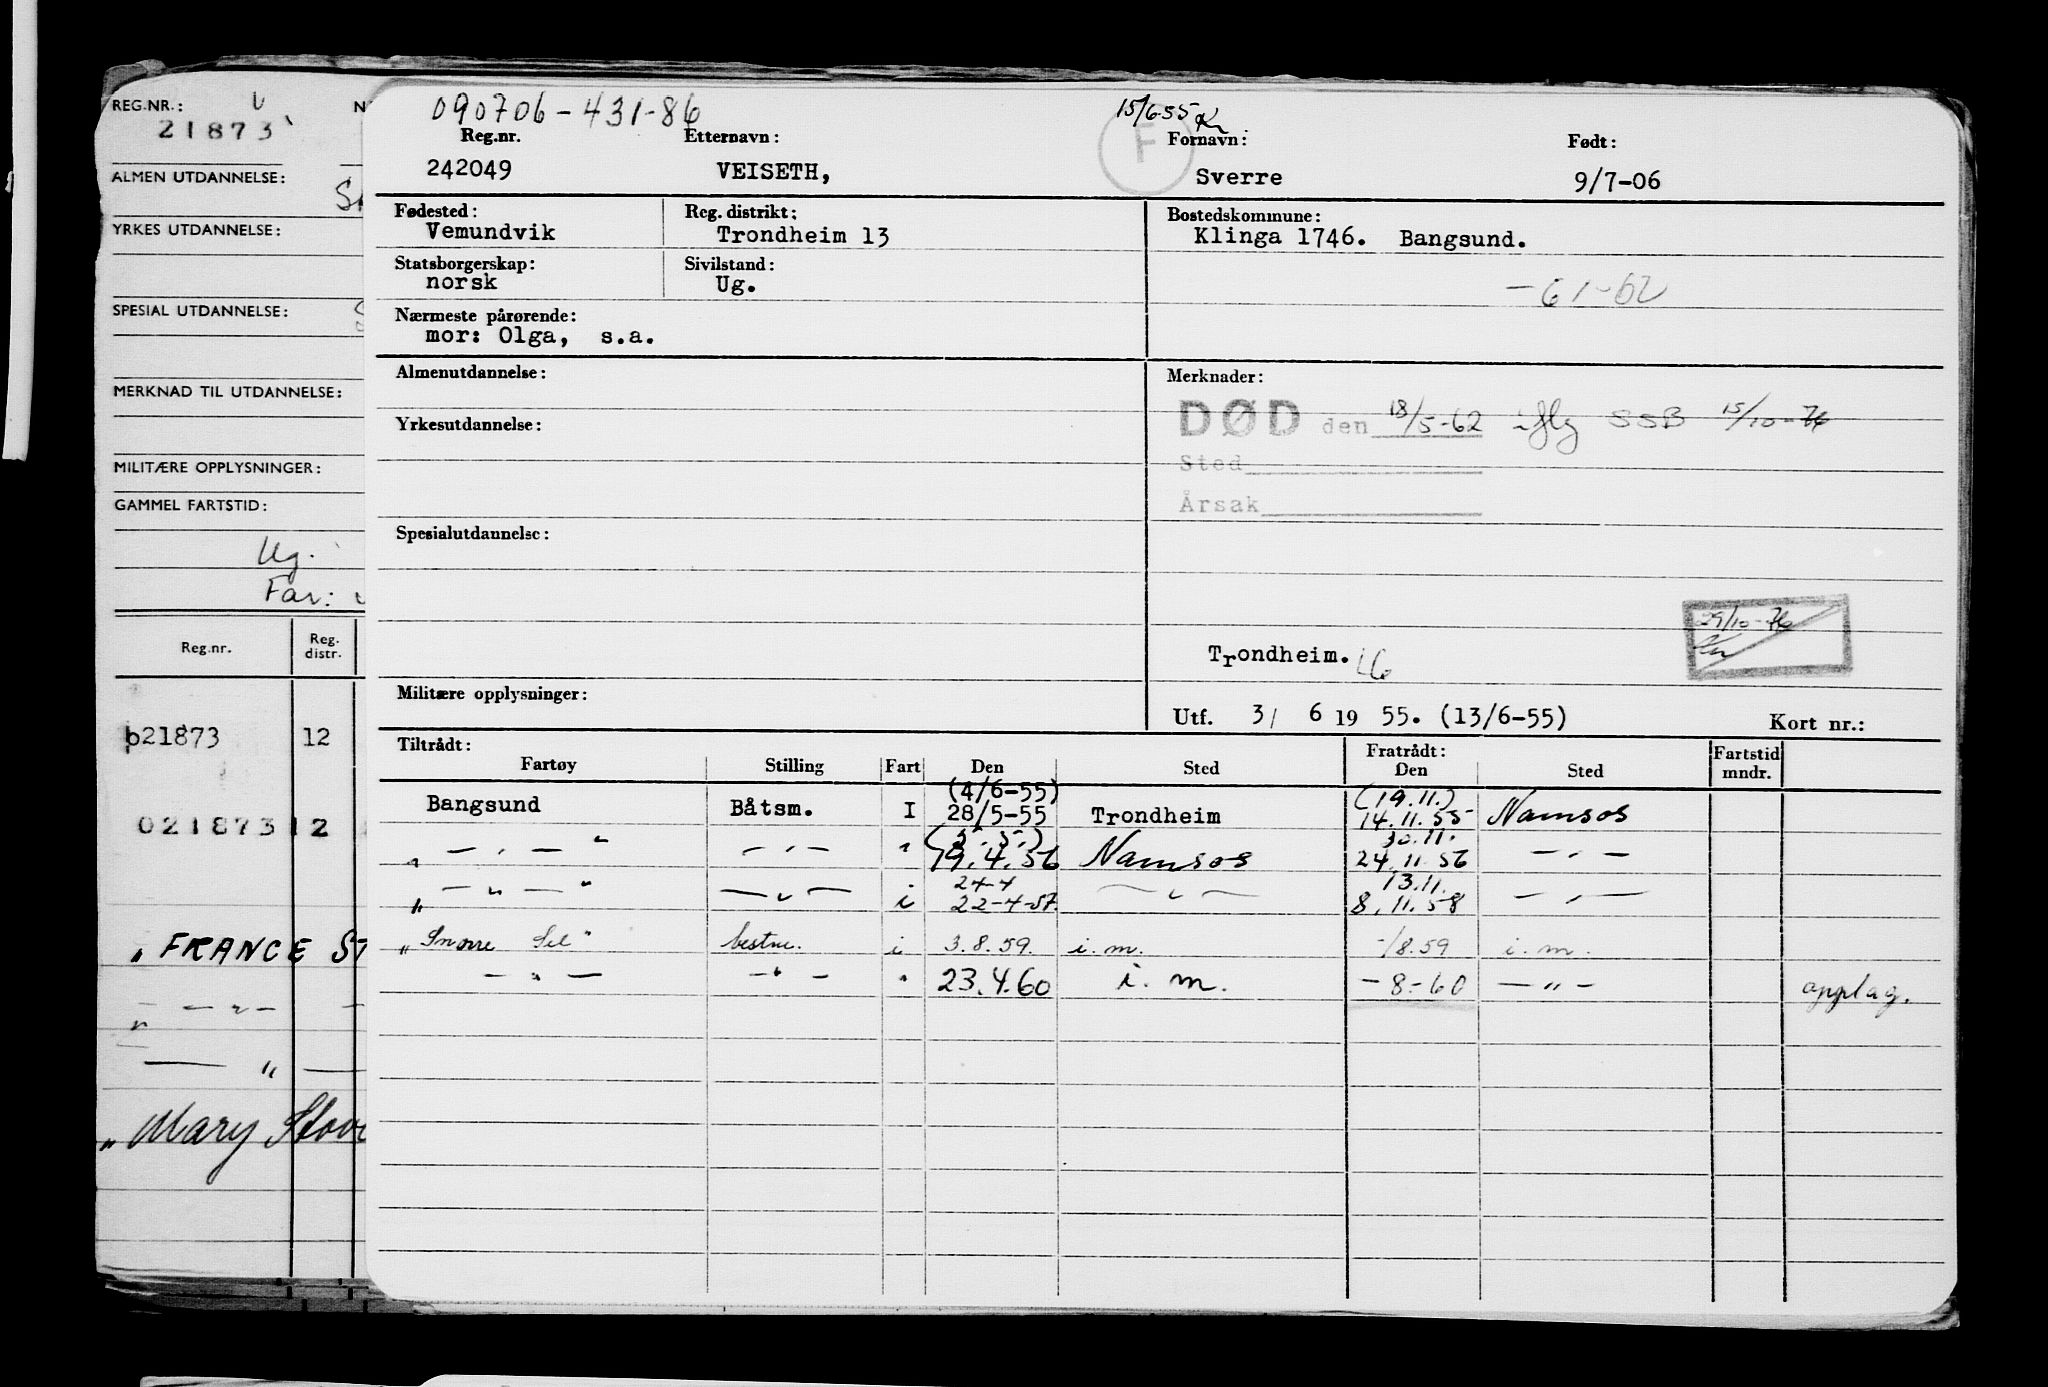 REG.NR.:
21873
ALMEN UTDANNELSE:
YRKES UTDANNELSE:
SPESIAL UTDANNELSE:
MERKNAD TIL UTDANNELSE:
MILITÆRE OPPLYSNINGER:
GAMMEL FARTSTID:
Ug.
Far:
Reg.nr. Reg. distr.
021873 12
021873 12
"FRANCE ST
— " —
— " —
"Mary Stov
090706-431-86 15/6-55
Reg.nr. Etternavn: F Fornavn: Født:
242049 VEISETH, Sverre 9/7-06
Fødested: Reg. distrikt: Bostedskommune:
Vemundvik Trondheim 13 Klinga 1746. Bangsund.
Statsborgerskap: Sivilstand:
norsk Ug. -61-62
Nærmeste pårørende:
mor: Olga, s.a.
Almenutdannelse: Merknader:
DØD den 18/5-62 iflg SSB 15/10-76
Yrkesutdannelse:
Sted
Årsak
Spesialutdannelse:
29/10-76
Trondheim.
Militære opplysninger:
Utf. 3/ 6 19 55. (13/6-55) Kort nr.:
Tiltrådt: Fratrådt: Fartstid
Fartøy Stilling Fart Den Sted Den Sted mndr.
(4/6-55) (19.11.)
Bangsund Båtsm. I 28/5-55 Trondheim 14.11.55 Namsos
(5.5.) 30.11.
" — " — " — " — " 19.4.56 Namsos 24.11.56 — " —
24-4 13.11.
" — " — " — " — i 22-4-57. — " — 8.11.58 — " —
"Snorre Sel" bestm. i 3.8.59. i.m. -/8.59 i.m.
— " — — " — " 23.4.60 i.m. -8-60 — " — opplag.